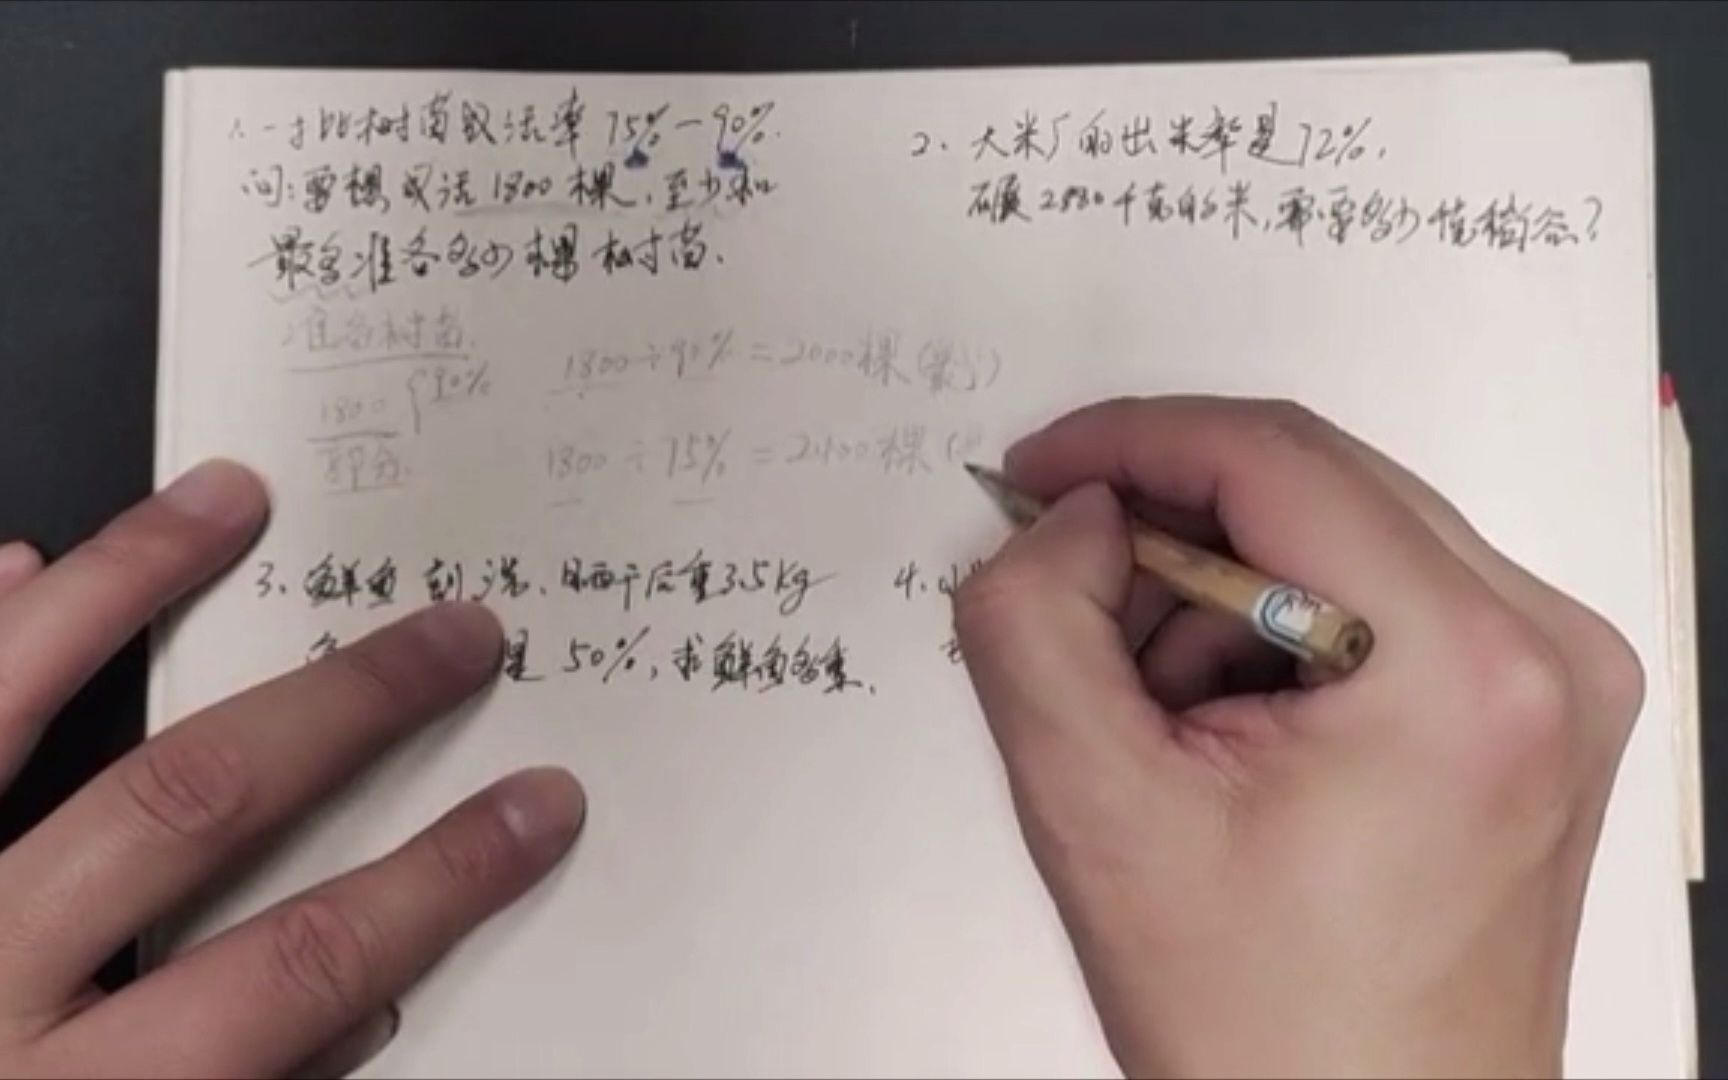 1. 一批树苗成活率 75%－90%.
问:要想成活 1800 棵，至少和
最多准备多少棵树苗.
准备树苗
1800 90%
部分.
1800 ÷ 90% = 2000棵(最少)
1800 ÷ 75% = 2400棵(
2、大米厂的出米率是72%，
碾2880千克的米，需要多少千克稻谷？
3、鲜鱼 刮洗、晒干后重3.5kg
是 50%，求鲜鱼多重.
4.